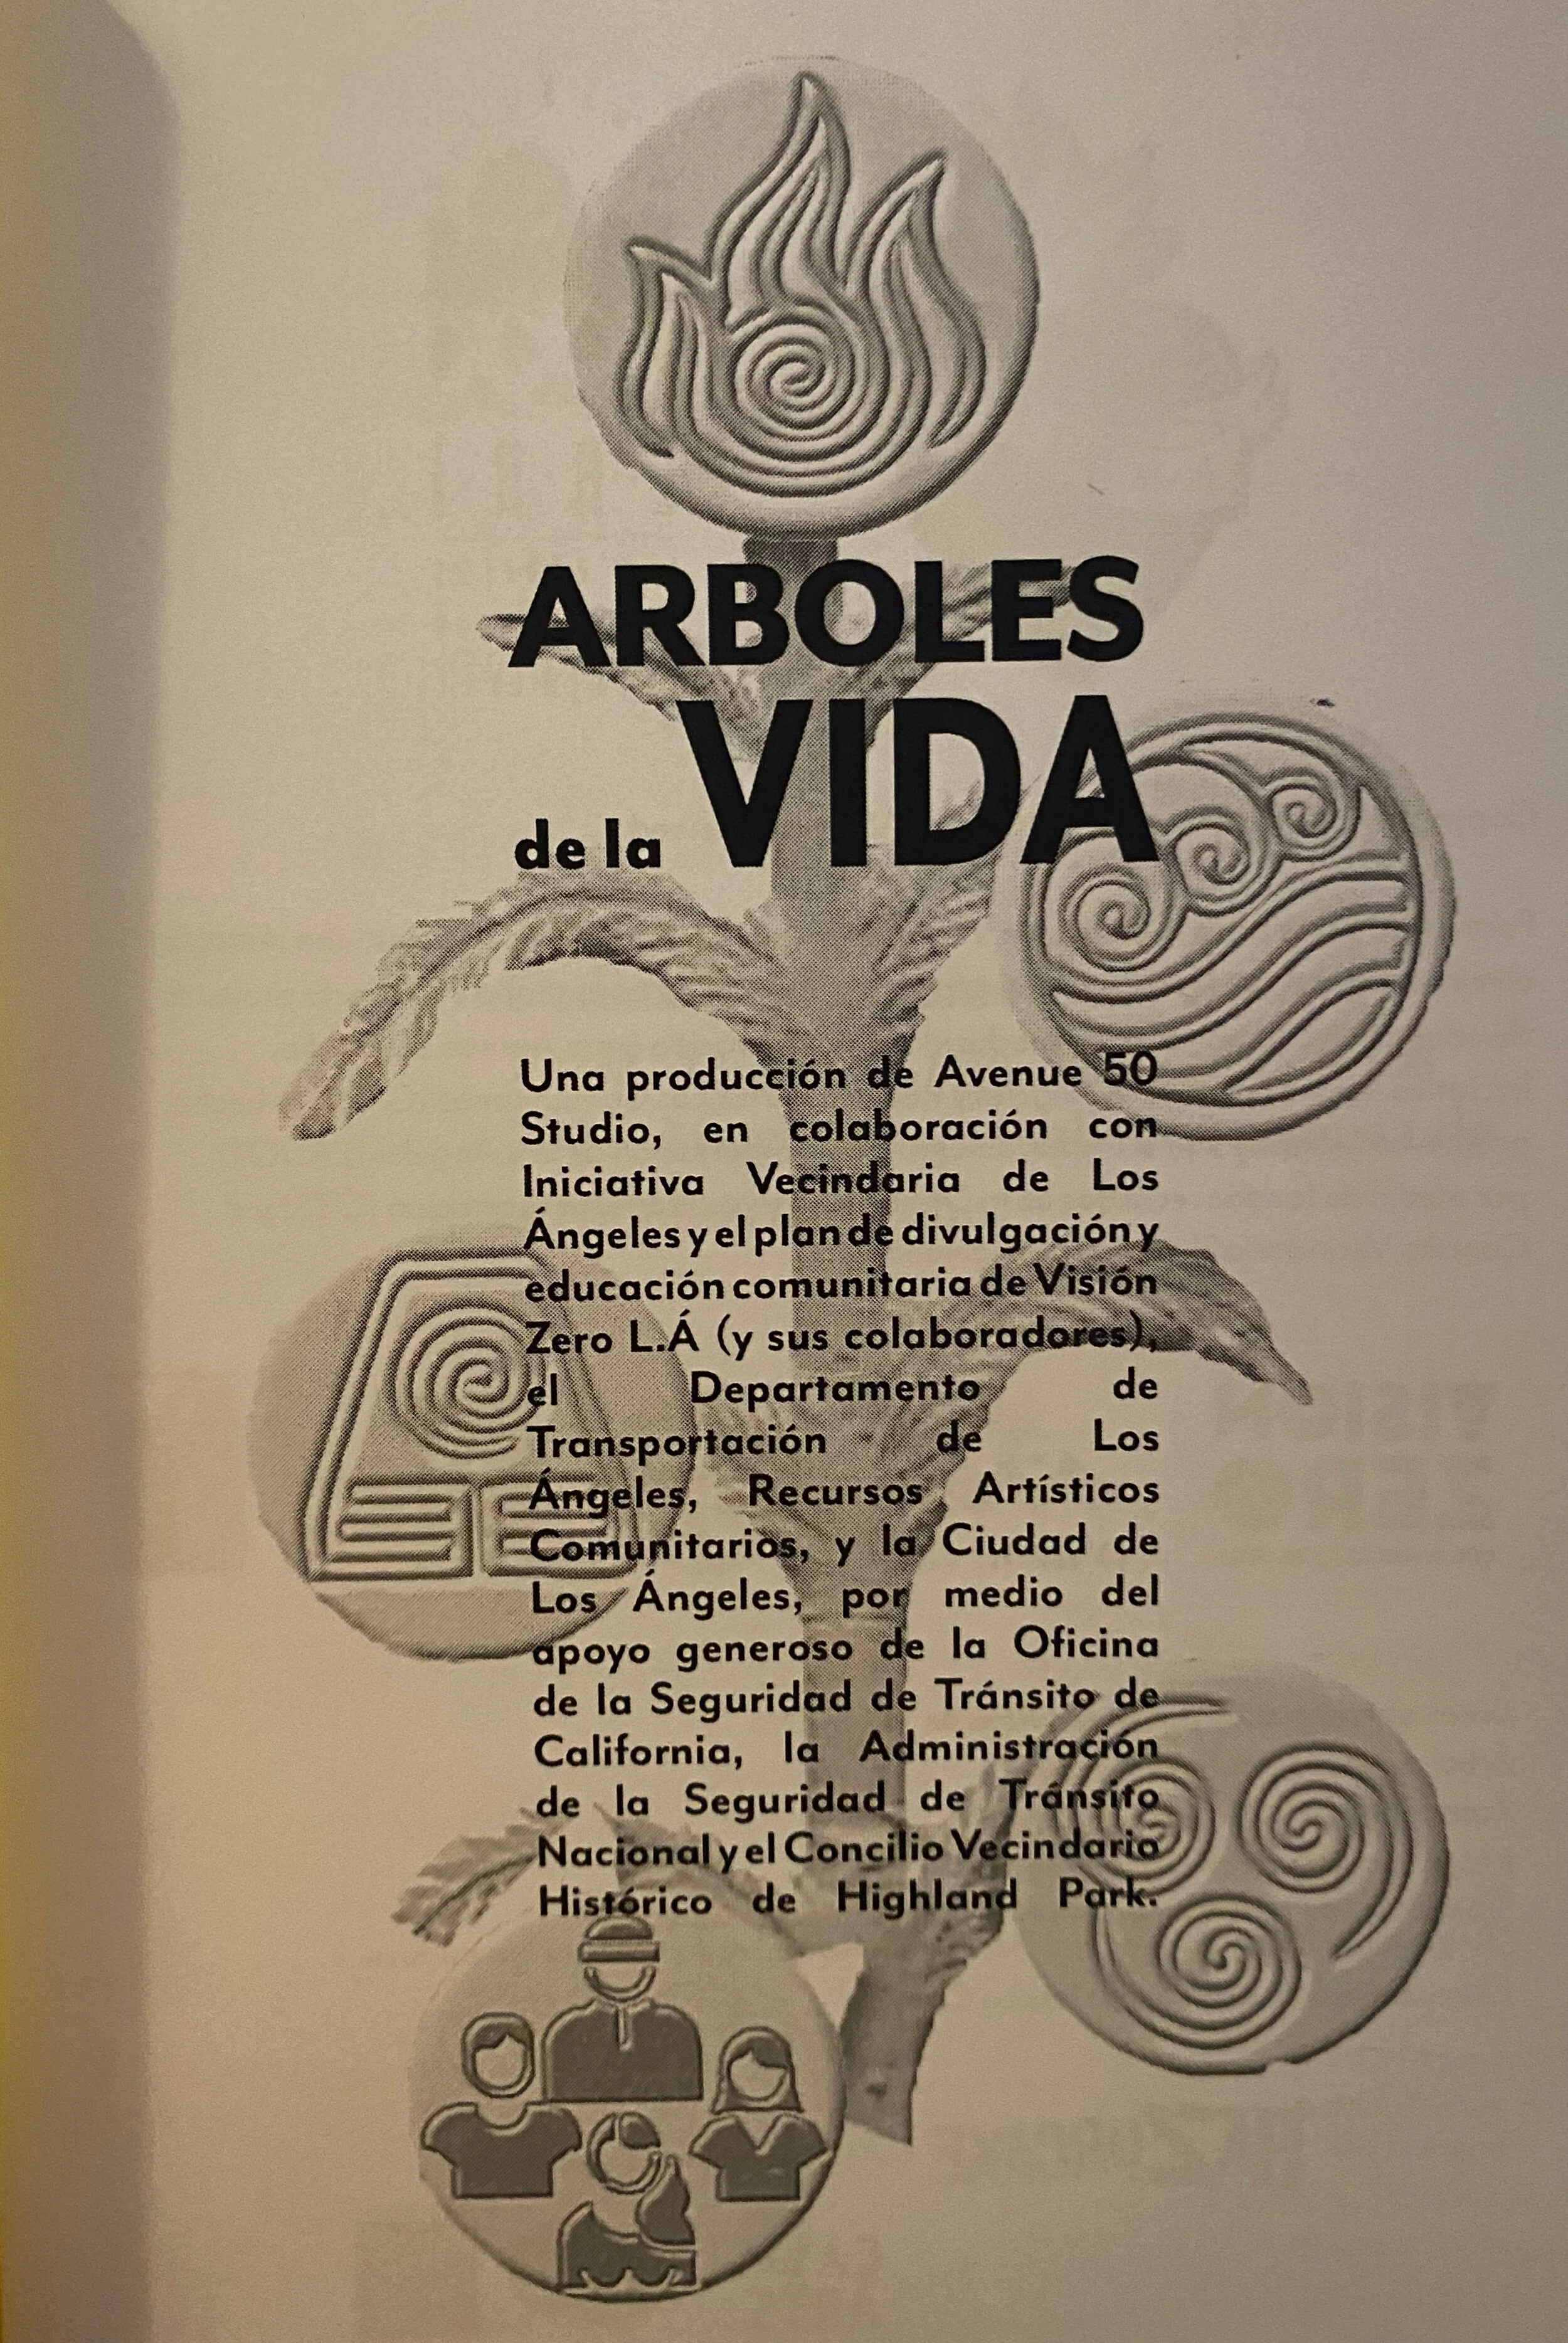 ARBOLES
de la VIDA
Una producción de Avenue 50
Studio, en colaboración con
Iniciativa Vecindaria de Los
Ángeles y el plan de divulgación y
educación comunitaria de Visión
Zero L.Á (y sus colaboradores),
el Departamento de
Transportación de Los
Ángeles, Recursos Artísticos
Comunitarios, y la Ciudad de
Los Ángeles, por medio del
apoyo generoso de la Oficina
de la Seguridad de Tránsito de
California, la Administración
de la Seguridad de Tránsito
Nacional y el Concilio Vecindario
Histórico de Highland Park.